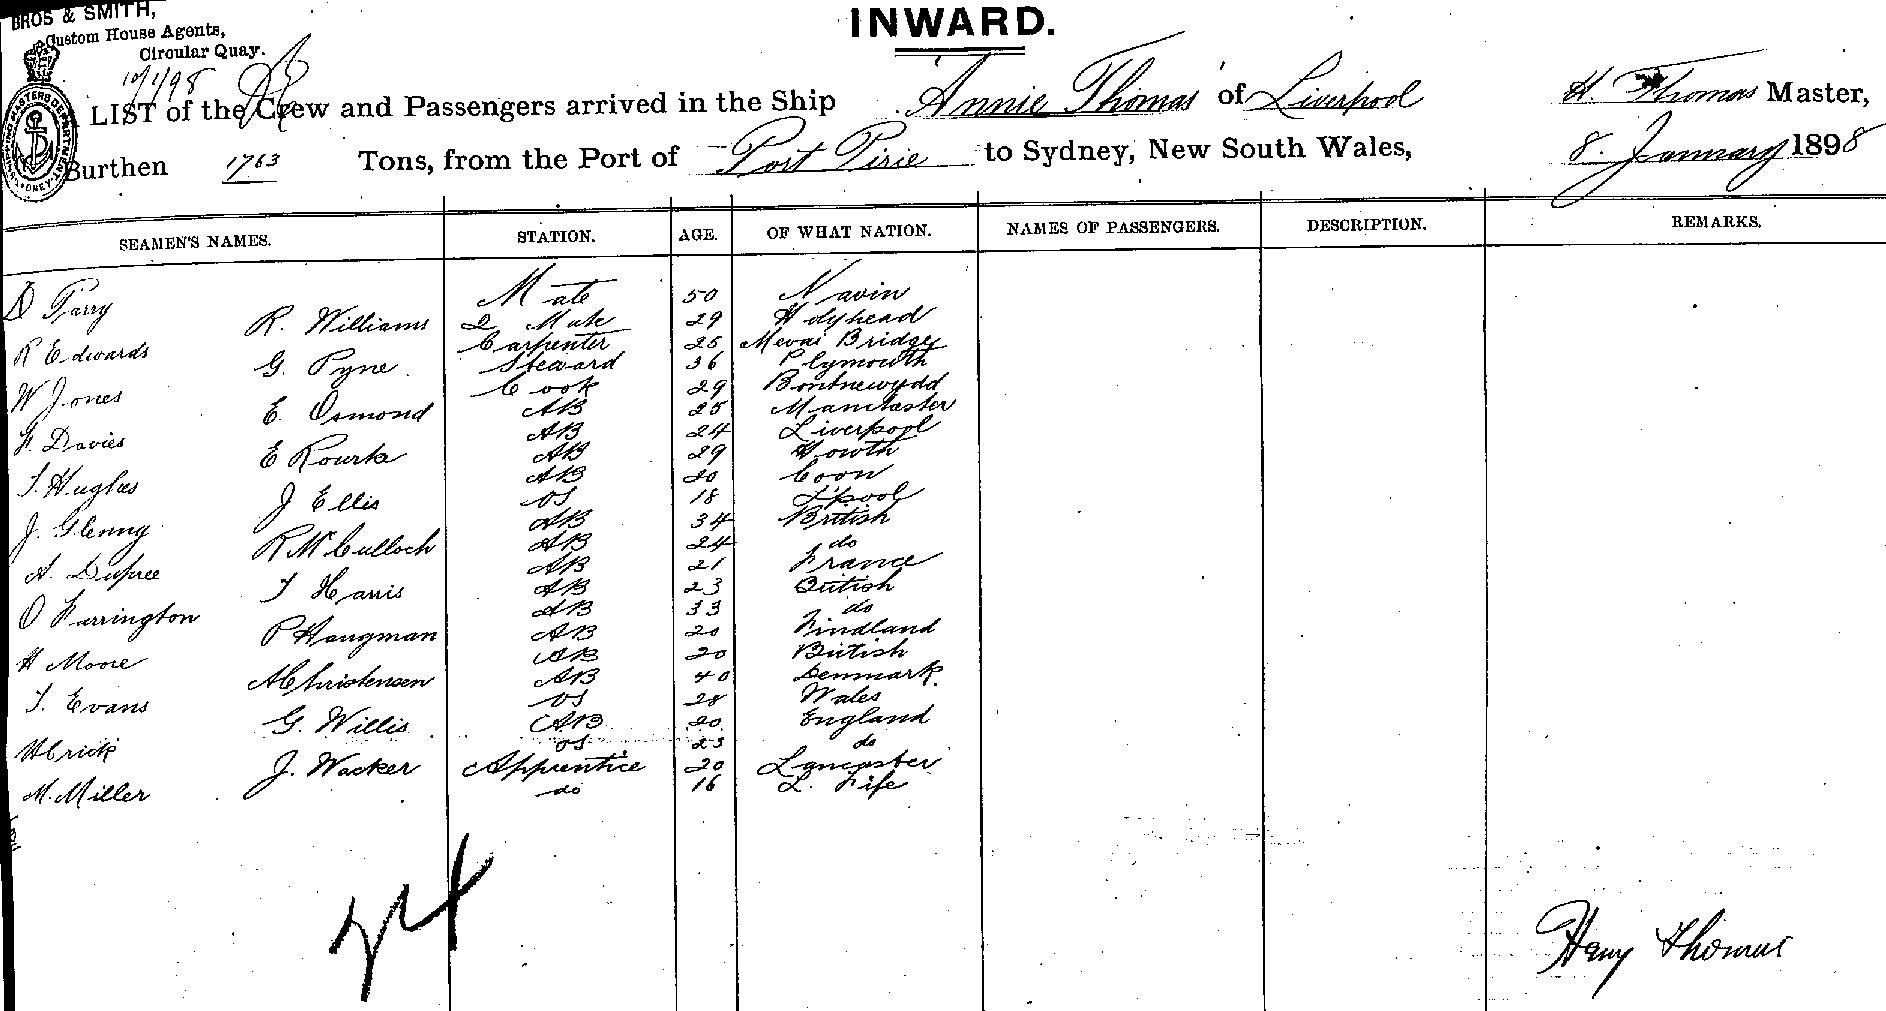 BROS & SMITH,
Custom House Agents,
Circular Quay.
10/1/98
INWARD.
LIST of the Crew and Passengers arrived in the Ship Annie Thomas of Liverpool H. Thomas Master,
Burthen 1763 Tons, from the Port of Port Pirie to Sydney, New South Wales, 8. January 1898
SEAMEN'S NAMES. STATION. AGE. OF WHAT NATION. NAMES OF PASSENGERS. DESCRIPTION. REMARKS.
D Parry Mate 50 Navin
R. Williams 2 Mate 29 Holyhead
R Edwards Carpenter 25 Menai Bridge
G. Pyne Steward 36 Plymouth
W Jones Cook 29 Bontnewydd
E. Osmond AB 25 Manchester
F. Davies AB 24 Liverpool
E Rourke AB 29 Howth
T. Hughes AB 20 Coon
J Ellis OS 18 L'pool
J. Glenny AB 34 British
R McCulloch AB 24 do
A. Dupree AB 21 France
T Harris AB 23 British
O Farrington AB 33 do
P Haugman AB 20 Findland
H Moore AB 20 British
A Christensen AB 40 Denmark.
T. Evans OS 28 Wales
G. Willis AB 20 England
W Crick OS 23 do
J. Wacker Apprentice 20 Lancaster
M. Miller do 16 L. Fife
24
Harry Thomas